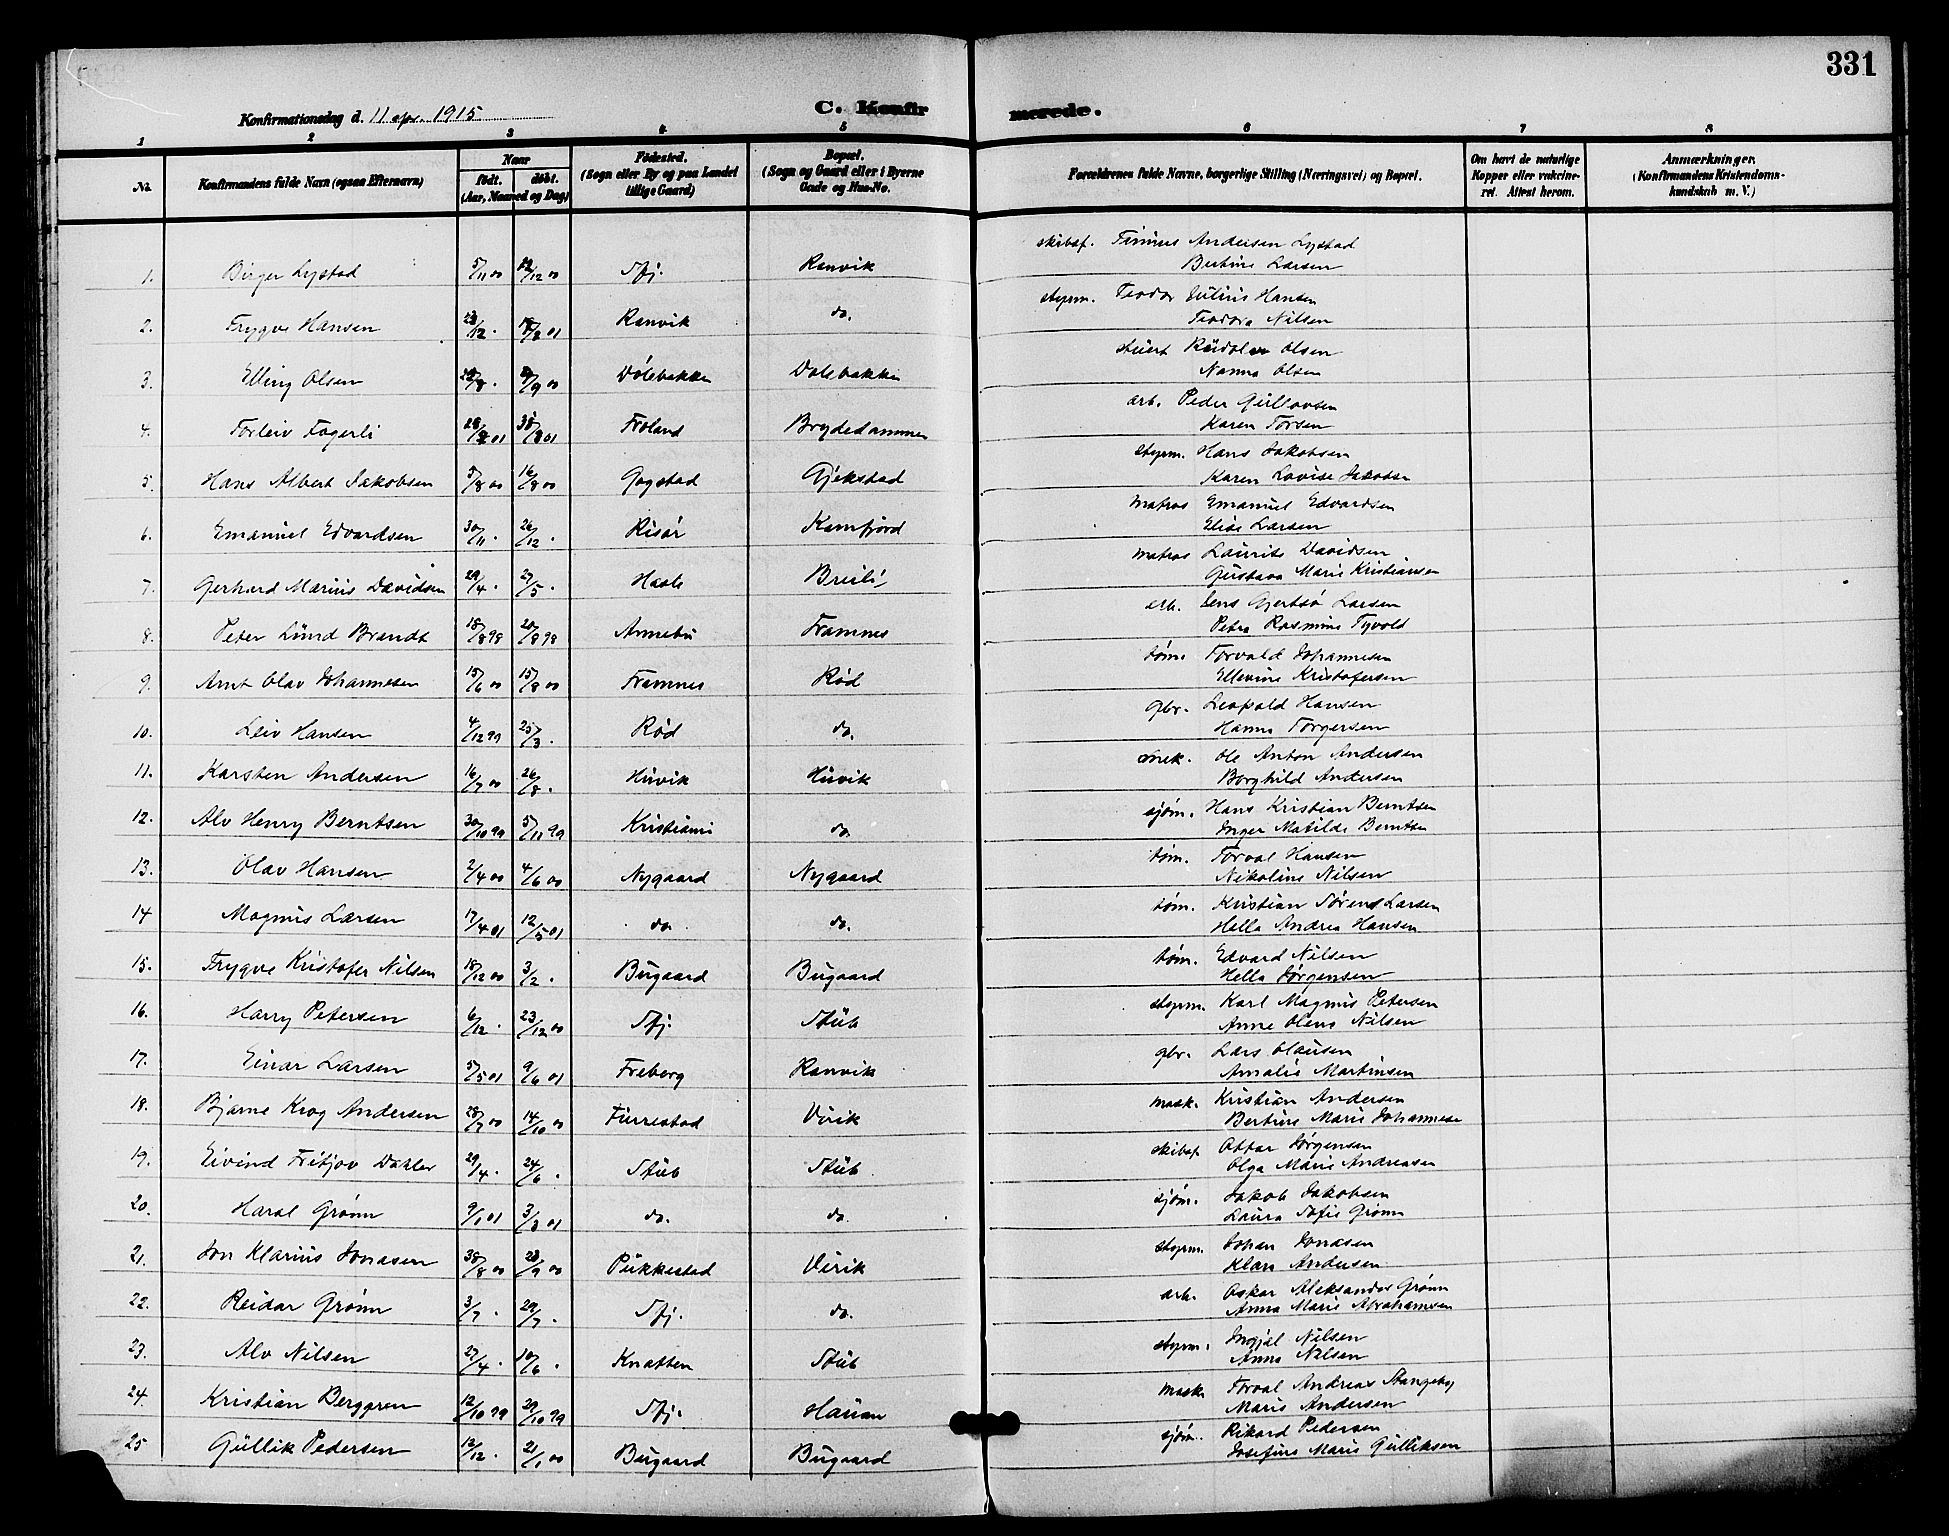 331
Konfirmationsdag d. 11 apr. 1915
C. Konfirmerede.
1 2 3 4 5 6 7 8
No. Konfirmandens fulde Navn (ogsaa Efternavn) Naar født. døbt. (Aar, Maaned og Dag) Fødested. (Sogn eller By og paa Landet tillige Gaard) Bopæl. (Sogn og Gaard eller i Byerne Gade og Hus-No. Forældrenes fulde Navne, borgerlige Stilling (Næringsvei) og Bopæl. Om havt de naturlige Kopper eller vakcineret. Attest herom. Anmærkninger. (Konfirmandens Kristendomskundskab m. V.)
skibsf. Andersen Lystad
1. Birger Lystad 5/11 00 /12 00 Sfj. Ranvik Bertine Larsen
styrm. Teodor Julius Hansen
2. Trygve Hansen 23/12. Ranvik do. Teodora Nilsen
stuert Olsen
3. Elling Olsen /8. /9 00 Dølebakken Dølebakken Nanna Olsen
arb. Peder Gullovsen
4. Torleiv Fagerli Froland Brydedammen Karen Torsen
styrm. Hans Jakobsen
5. Hans Albert Jakobsen 5/8 00 16/8 00 Gogstad Gjekstad Karen Lovise Jakobsen
matros Emanuel Edvardsen
6. Emanuel Edvardsen 30/11. 26/12. Risør Kamfjord Elise Larsen
matros Laurits Davidsen
7. Gerhard Marius Davidsen 29/4. 27/5. Haole Breili Gustava Marie Kristiansen
arb. Jens Gjertsø Larsen
8. Peter Lund Brandt 18/8 98 20/8 98 Annebu Framnes Petra Rasmine Tyvold
tøm. Torvald Johannesen
9. Arnt Olav Johannesen 15/6 00 15/8 00 Framnes Rød Ellevine Kristofersen
gbr. Leopold Hansen
10. Leiv Hansen 4/12 99 25/3. Rød do. Hanna Torgersen
snek. Ole Anton Andersen
11. Karsten Andersen 16/7 00 26/8. Huvik Huvik Borghild Andersen
sjøm. Hans Kristian Berntsen
12. Alv Henry Berntsen 30/10 99 5/11 99 Kristiania do. Inger Matilde Berntsen
tøm. Torval Hansen
13. Olav Hansen 2/4 00 4/6 00 Nygaard Nygaard Nikoline Nilsen
tøm. Kristian Sørend Larsen
14 Magnus Larsen 17/4 01 12/5 01 do. do. Hella Andrea Hansen
tøm. Edvard Nilsen
15. Trygve Kristofer Nilsen 18/12 00 3/2. Bugaard Bugaard Hella Jørgensen
styrm. Karl Magnus Petersen
16. Harry Petersen 6/12. 23/12 00 Sfj. Stub Anne Olena Nilsen
gbr. Lars Olausen
17. Einar Larsen 5/5 01 9/6 01 Freberg Ranvik Amalie Martinsen
mask. Kristian Andersen
18. Bjarne Krog Andersen 28/7 00 14/10 00 Furrestad Virik Bertine Marie Johannesen
skibsf. Ottar Jørgensen
19. Eivind Fritjov Dahler 29/4. 24/6. Stub Stub Olga Marie Andreasen
sjøm. Jakob Jakobsen
20. Haral Grønn 9/1 01 3/3 01 do. do. Laura Sofie Grønn
styrm. Johan Jonasen
21. Jon Klarius Jonasen 30/8 00 23/9 00 Pukkestad Virik Klara Andersen
arb. Oskar Aleksander Grønn
22. Reidar Grønn 3/7. 29/7. Sfj. do. Anna Marie Abrahamsen
styrm. Ingjal Nilsen
23. Alv Nilsen 27/4. 10/6. Knatten Stub Anna Nilsen
mask. Torval Andreas Stangeby
24. Kristian Berggren 12/10 99 29/10 99 Sfj. Hauan Marie Andersen
sjøm. Rikard Pedersen
25 Gullik Pedersen 12/12. 21/1 00 Bugaard Bugaard Josefine Marie Gulliksen